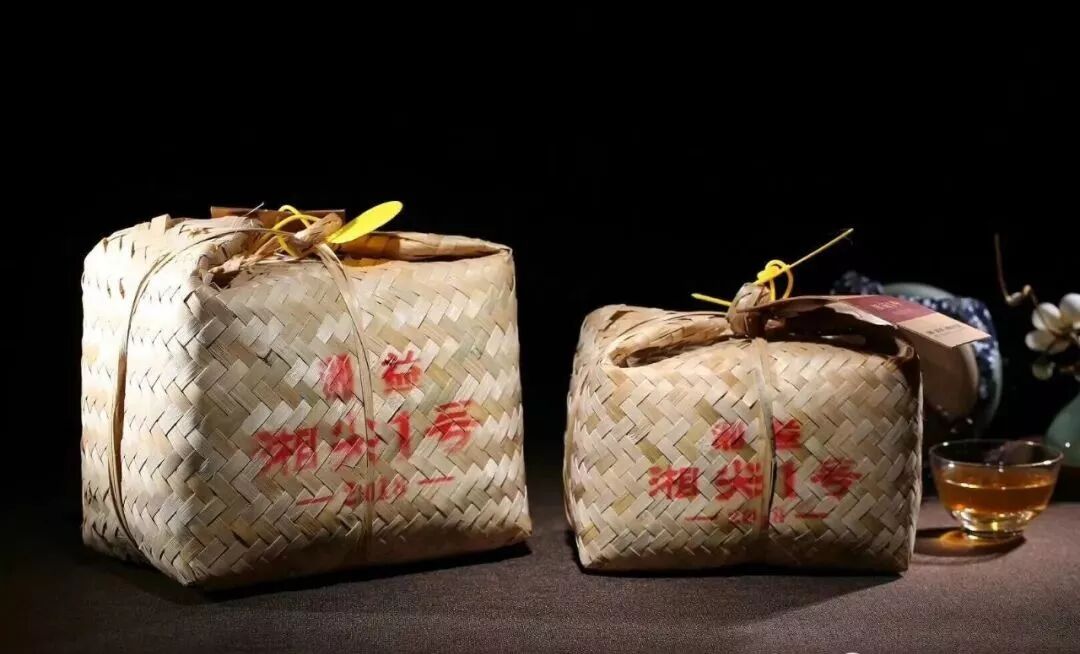 湘益
湘尖1号
2018
湘益
湘尖1号
2018